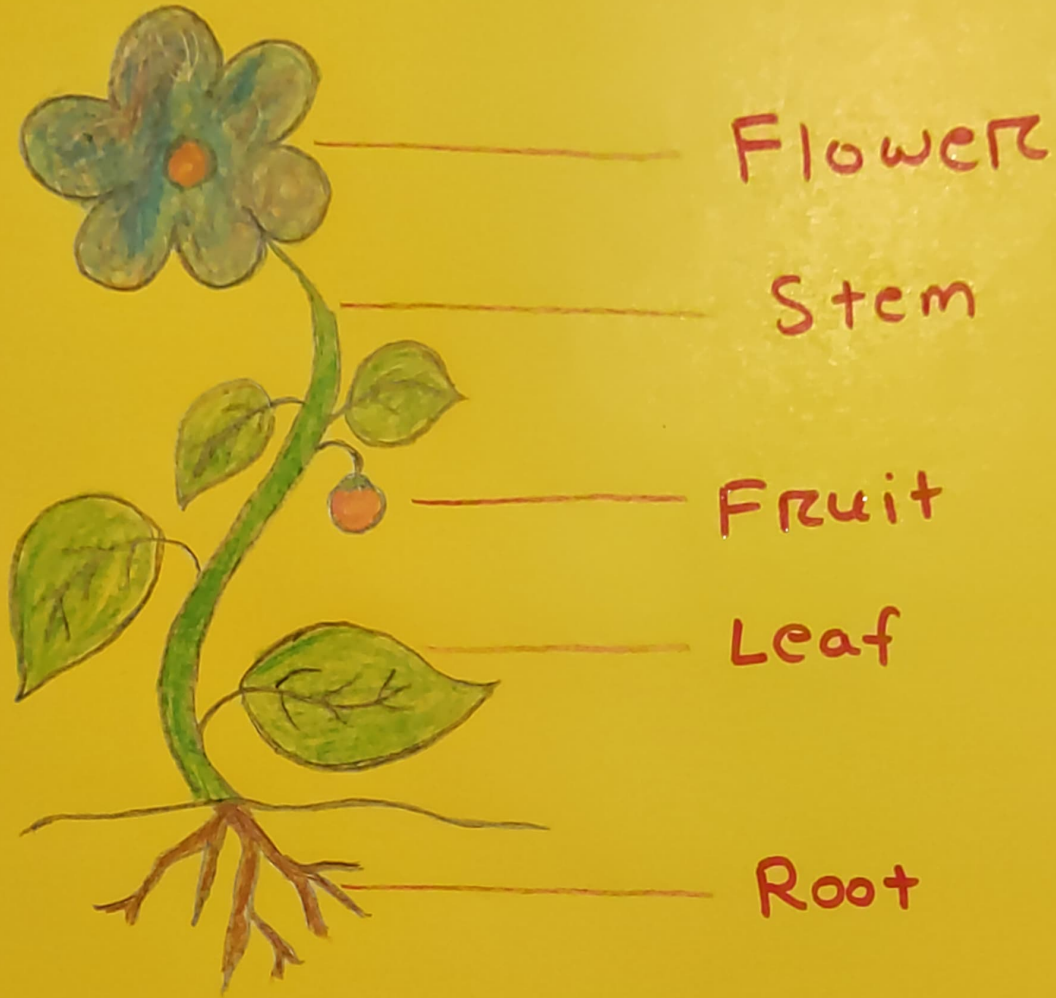 Flower
Stem
Fruit
Leaf
Root